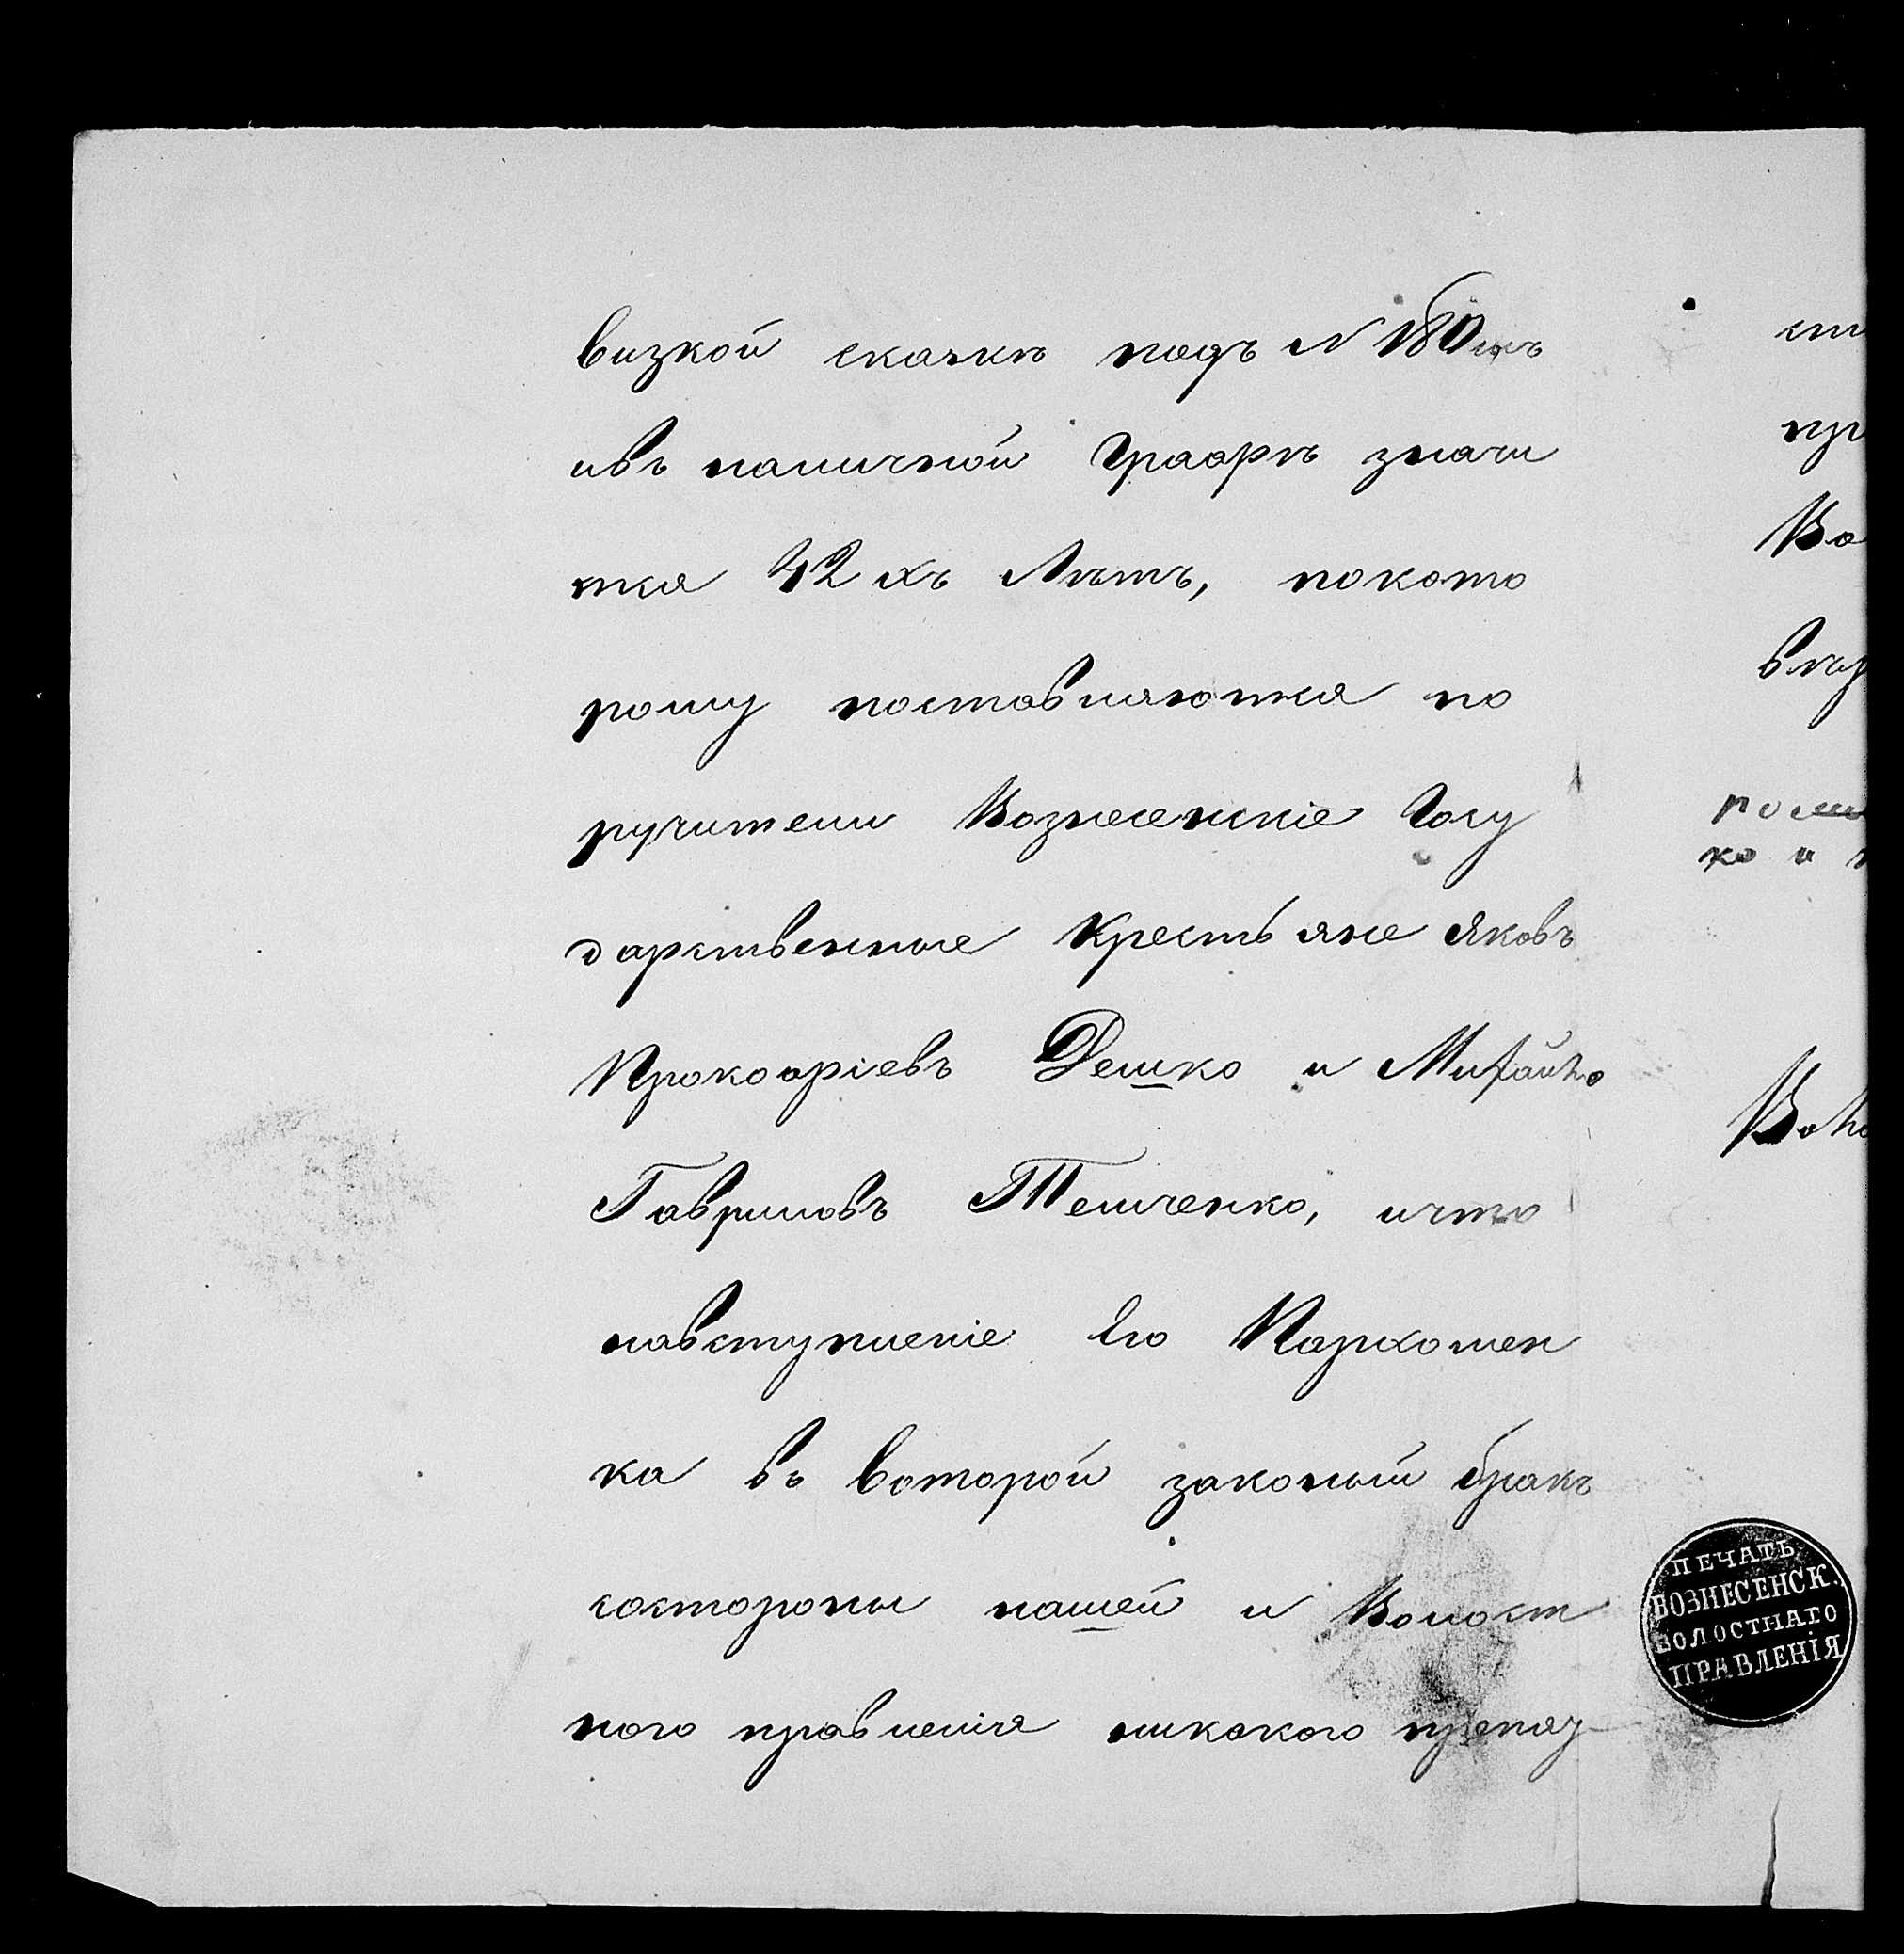 визкой скаскѣ подъ N 180мъ
ивъ наличной Графѣ значи
тся 42 хъ Лѣтъ, покото
рому поставляются по
ручители Вознесенскіе Госу
дарственные Крестьяне Яковъ
Прокофіевъ Демко и Михайло
Гавриловъ Темченко, ичто
навступленіе Его Пархомен
ка въ воторой законый бракъ
состороны нашей и Волост
ного правленія никакого препят
ст
пр
Во
вѣр
ко и
Воло
ПЕЧАТЬ
ВОЗНЕСЕНСК.
ВОЛОСТНАГО
ПРАВЛЕНІЯ